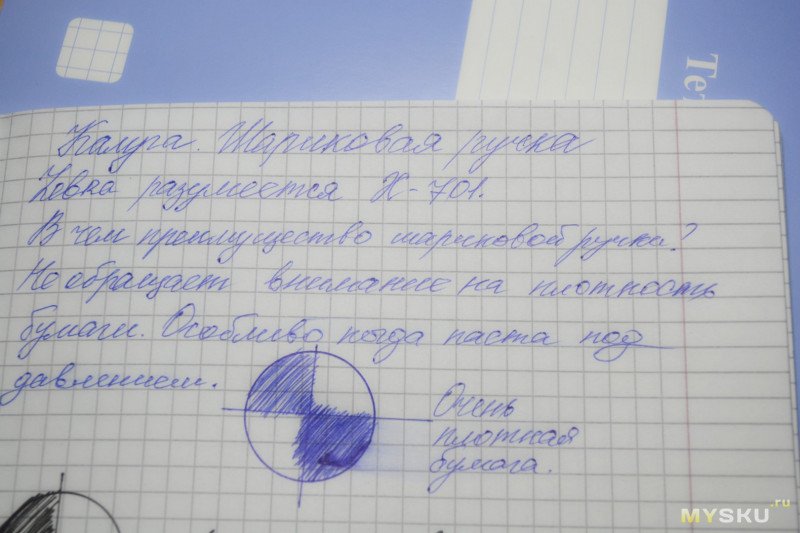 Те
Калуга. Шариковая ручка
Zевка разумеется X-701.
В чем преимущество шариковой ручки?
Не обращает внимание на плотность
бумаги. Особливо когда паста под
давлением.
Очень
плотная
бумага.
MYSKU.ru